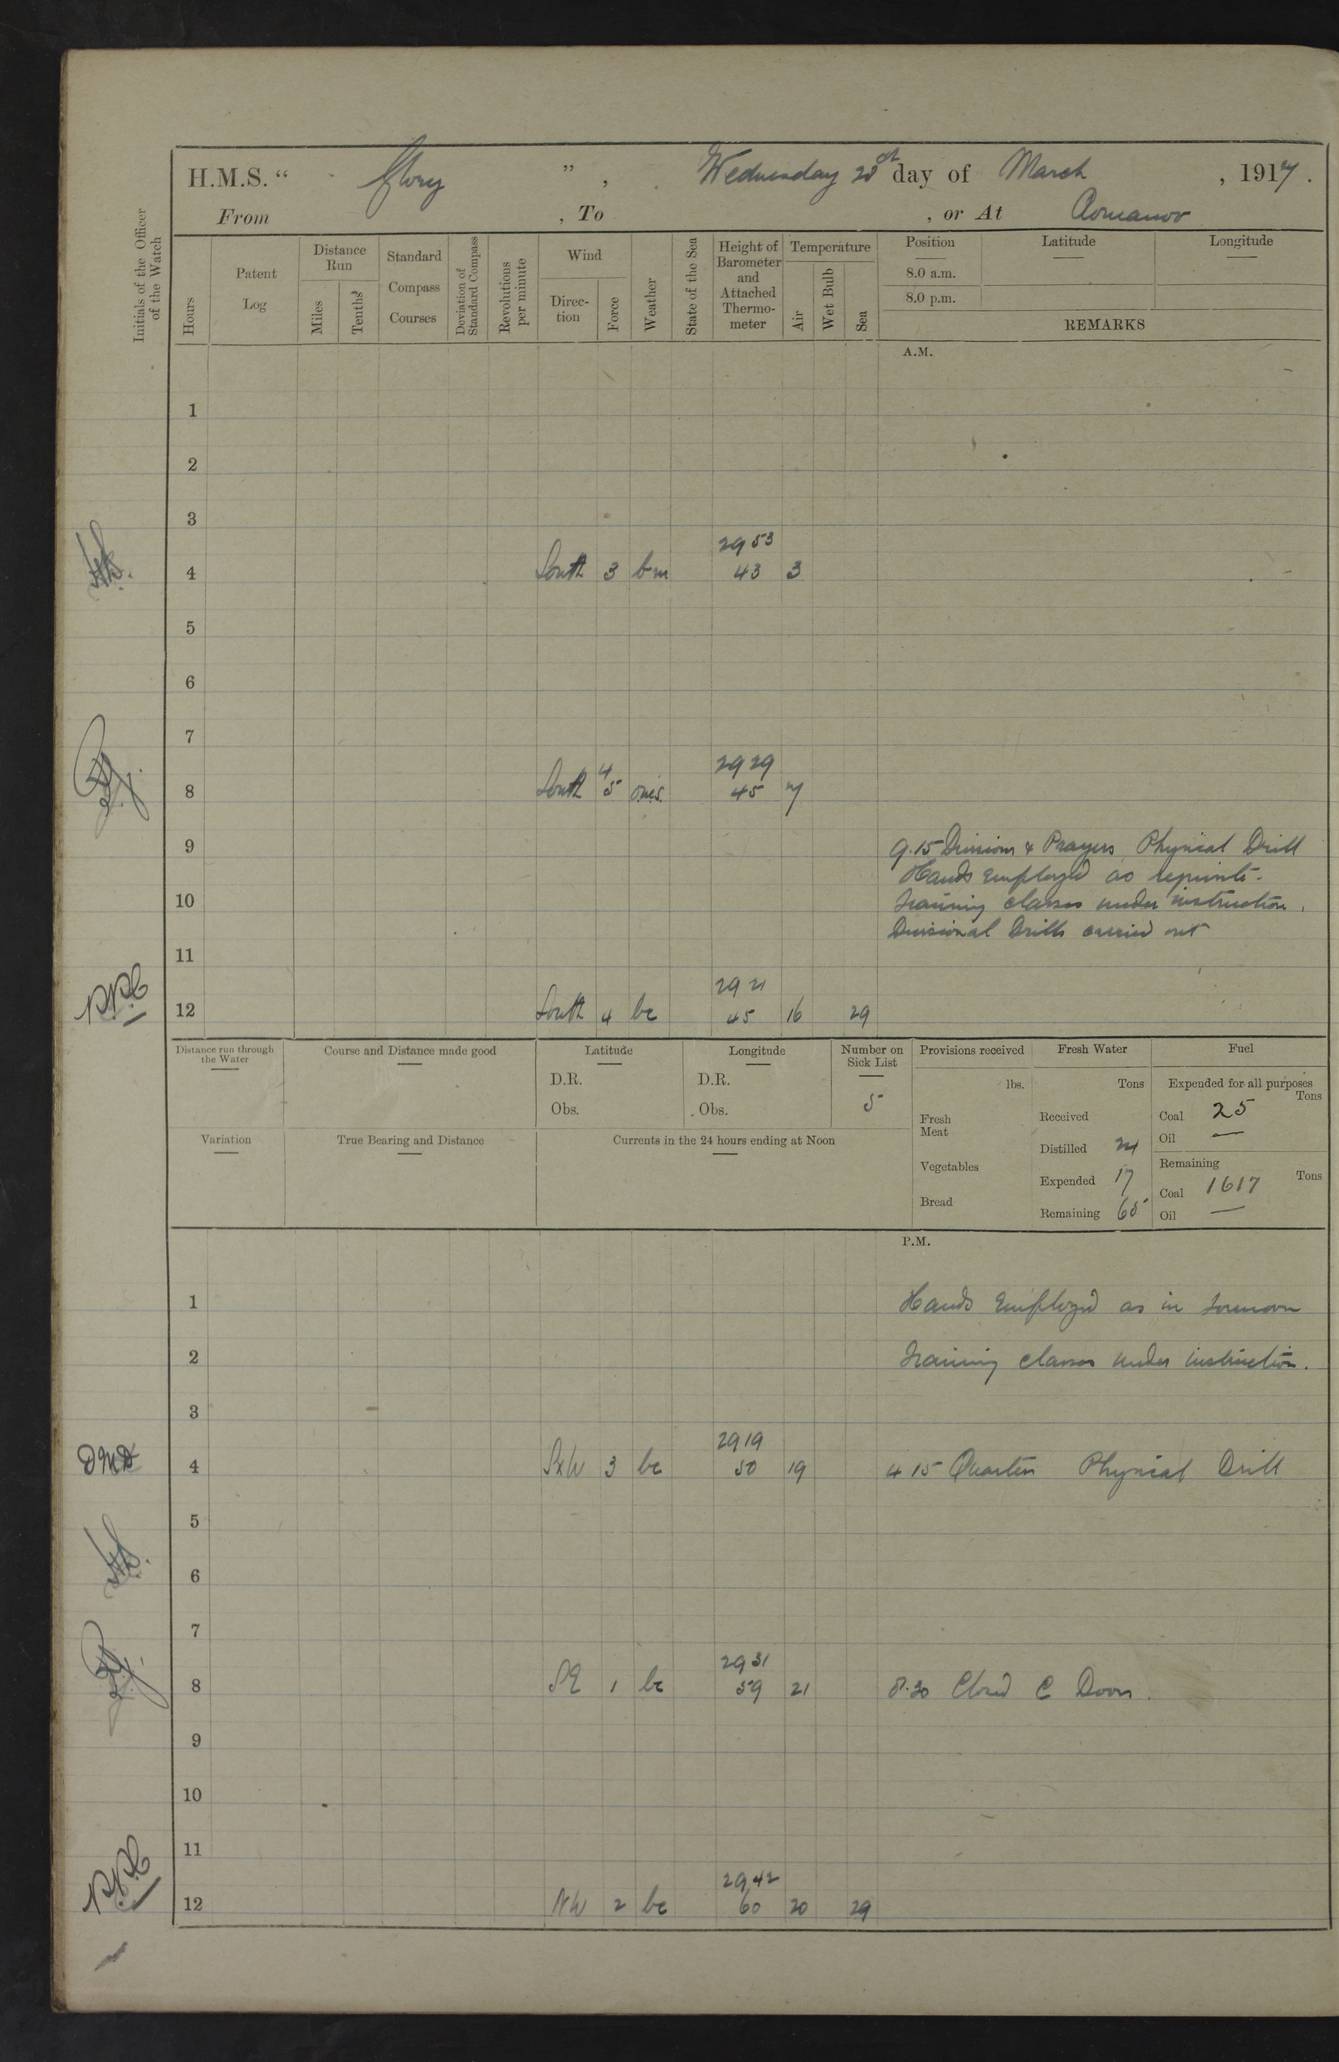 H.M.S. “ Glory ” , Wednesday 28th day of March , 1917.
From , To , or At Romanov
Initials of the Officer of the Watch
Hours
Patent Log
Distance Run
Miles
Tenths
Standard Compass Courses
Deviation of Standard Compass
Revolutions per minute
Wind
Direction
Force
Weather
State of the Sea
Height of Barometer and Attached Thermometer
Temperature
Air
Wet Bulb
Sea
Position
Latitude
Longitude
8.0 a.m.
8.0 p.m.
REMARKS
A.M.
1
2
3
29 53
4 South 3 bm 43 3
5
6
7
4 29 29
8 South 5 oms 45 7
9 9.15 Divisions & Prayers Physical Drill
Hands Employed as requisite.
10 Training classes under instruction.
Divisional Drills carried out
11
29 21
12 South 4 bc 45 16 29
P.P.C
Distance run through the Water
Course and Distance made good
Latitude
D.R.
Obs.
Longitude
D.R.
Obs.
Number on Sick List
5
Provisions received
lbs.
Fresh Meat
Vegetables
Bread
Fresh Water
Tons
Received
Distilled 24
Expended 17
Remaining 65
Fuel
Expended for all purposes
Tons
Coal 25
Oil —
Remaining
Tons
Coal 1617
Oil —
Variation
True Bearing and Distance
Currents in the 24 hours ending at Noon
P.M.
1 Hands Employed as in forenoon
2 Training classes under instruction.
3
29 19
4 SxW 3 bc 50 19 4 15 Quarters Physical Drill
5
6
7
29 31
8 SE 1 bc 59 21 8.30 Closed C Doors.
9
10
11
29 42
12 NW 2 bc 60 20 29
P.P.C